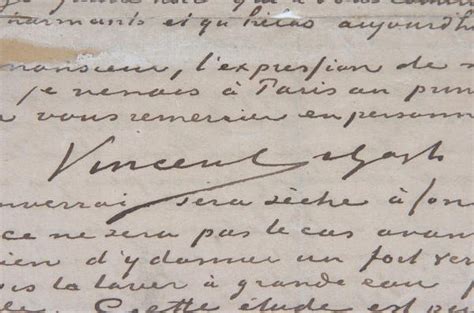 qui à vous
armants et qu'hélas aujourd'h
monsieur, l'expression de
je venais à Paris au prin
vous remercier en personn
Vincent van Gogh
nverrai sera sèche à fon
ce ne sera pas le cas avan
ien d'y donner un fort ver
la laver à grande eau
Cette étude est